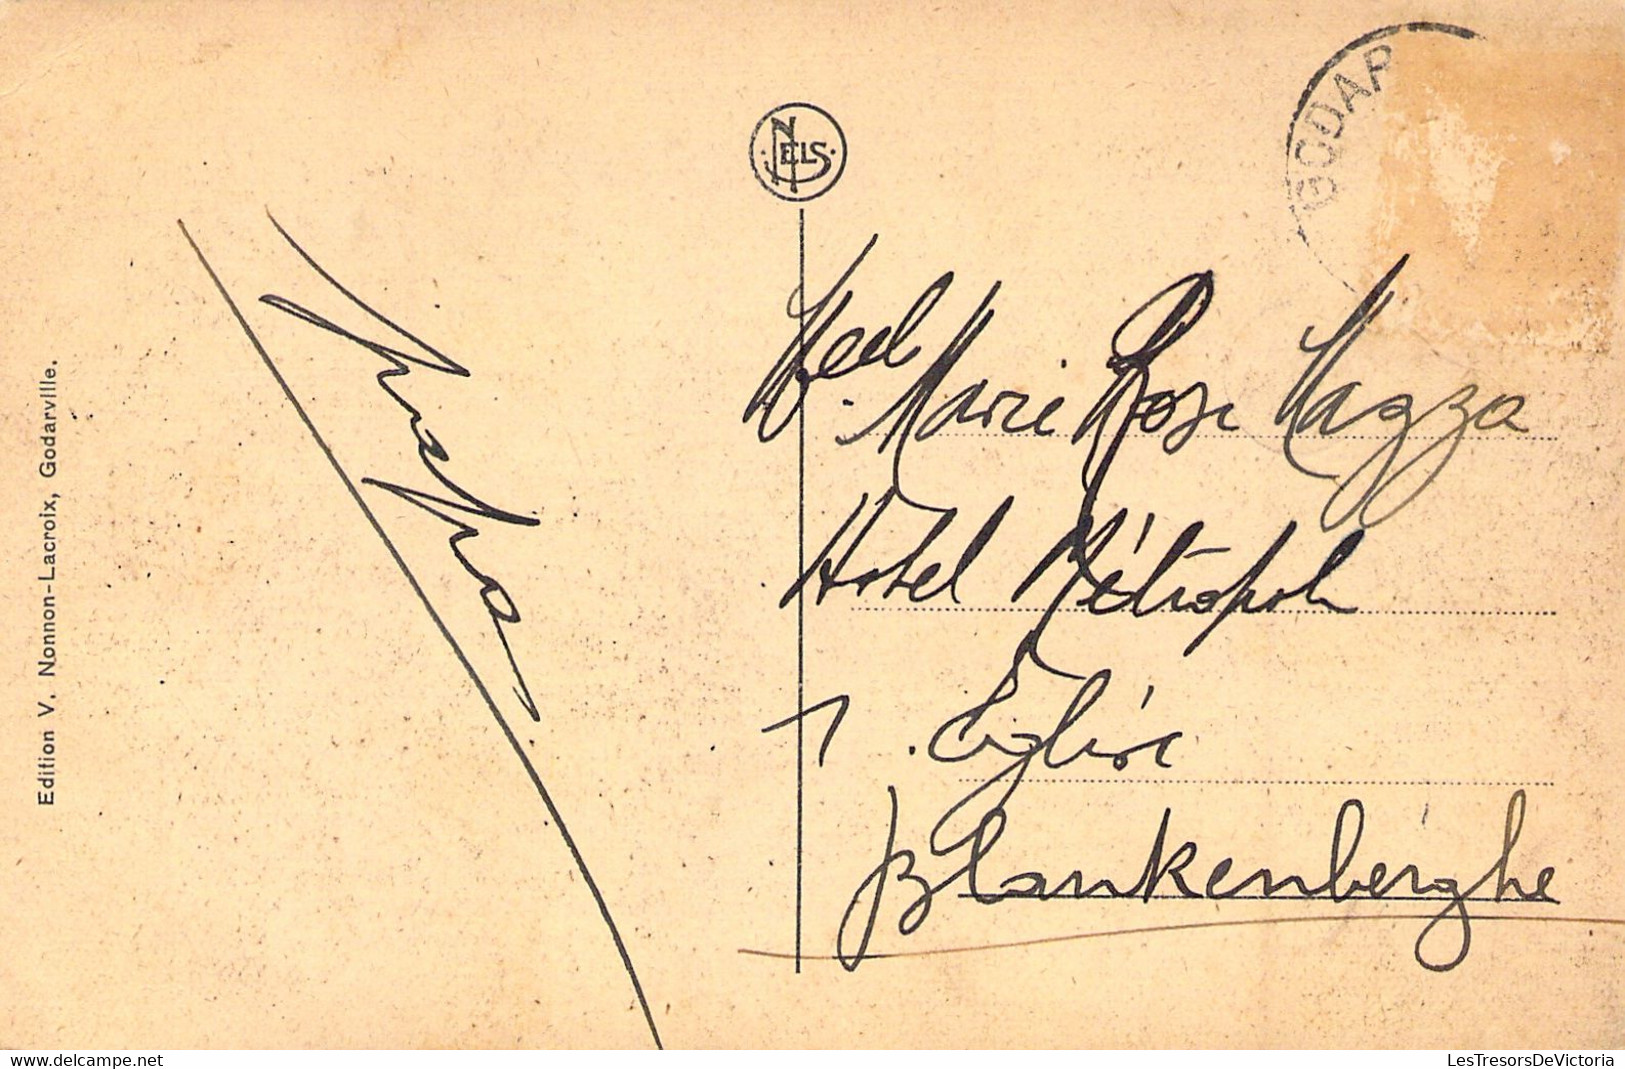 Edition V. Nonnon-Lacroix, Godarville.
NELS
GODAR
Marie Rose Mazza
Hotel Métropole
7 . Église
Blankenberghe
delcampe.net
LesTresorsDeVictoria